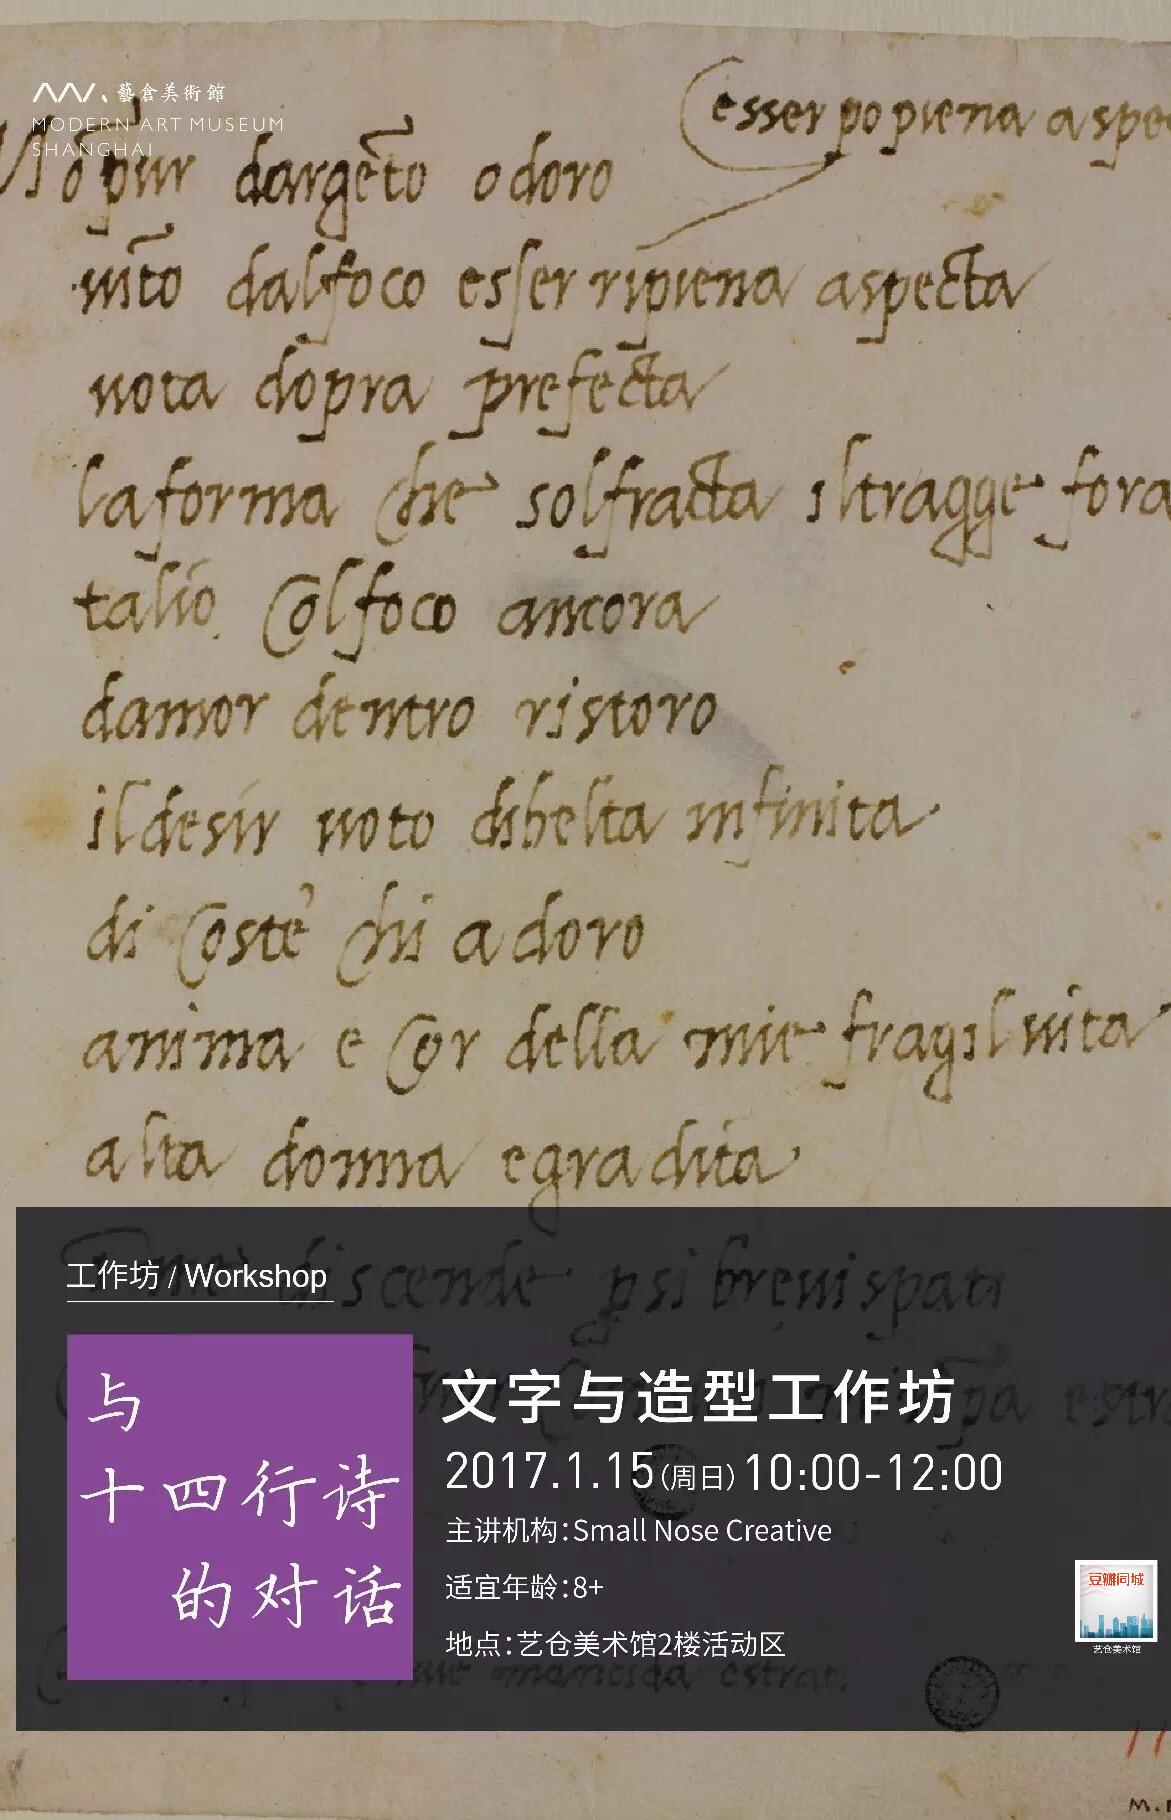 藝倉美術館
MODERN ART MUSEUM
SHANGHAI
esser po piena aspe
dargẽto o doro
dal foco esser ripiena aspecta
uota dopra prefecta
la forma che sol fracta il tragge fora
col foco ancora
damor dentro ristoro
il desir uoto di belta infinita
di coste chi adoro
anima e cor della mie fragil uita
alta donna e gradita
discende p si breui spati
工作坊 / Workshop
与
十四行诗
的对话
文字与造型工作坊
2017.1.15(周日)10:00-12:00
主讲机构:Small Nose Creative
适宜年龄:8+
地点:艺仓美术馆2楼活动区
豆瓣同城
艺仓美术馆